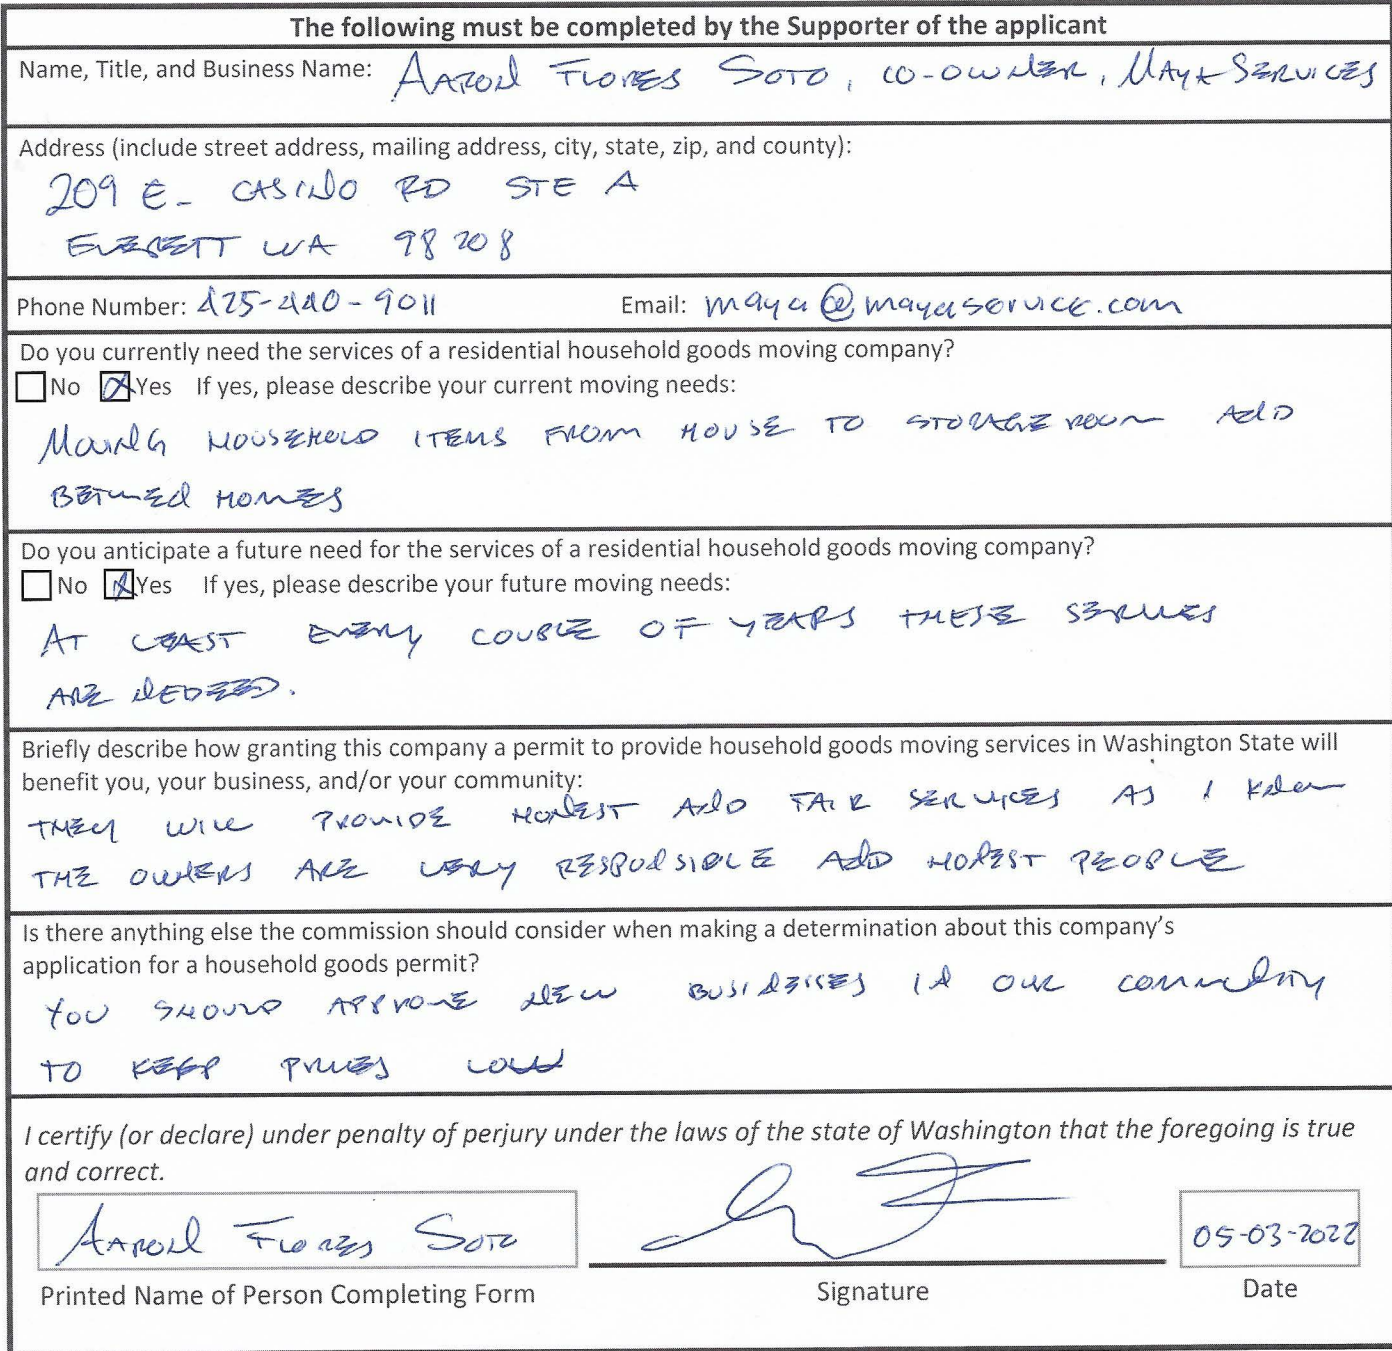 The following must be completed by the Supporter of the applicant
Name, Title, and Business Name: AARON FLORES SOTO, CO-OWNER, MAYA SERVICES
Address (include street address, mailing address, city, state, zip, and county):
209 E. CASINO RD STE A
EVERETT WA 98208
Phone Number: 425-440-9011 Email: maya@mayaservice.com
Do you currently need the services of a residential household goods moving company?
No Yes If yes, please describe your current moving needs:
MOVING HOUSEHOLD ITEMS FROM HOUSE TO STORAGE ROOM AND
BETWEEN HOMES
Do you anticipate a future need for the services of a residential household goods moving company?
No Yes If yes, please describe your future moving needs:
AT LEAST EVERY COUPLE OF YEARS THESE SERVICES
ARE NEDEED.
Briefly describe how granting this company a permit to provide household goods moving services in Washington State will
benefit you, your business, and/or your community:
THEY WILL PROVIDE HONEST AND FAIR SERVICES AS I KNOW
THE OWNERS ARE VERY RESPONSIBLE AND HONEST PEOPLE
Is there anything else the commission should consider when making a determination about this company's
application for a household goods permit?
YOU SHOULD APPROVE NEW BUSINESSES IN OUR COMMUNITY
TO KEEP PRICES LOW
I certify (or declare) under penalty of perjury under the laws of the state of Washington that the foregoing is true
and correct.
AARON FLORES SOTO 05-03-2022
Printed Name of Person Completing Form Signature Date